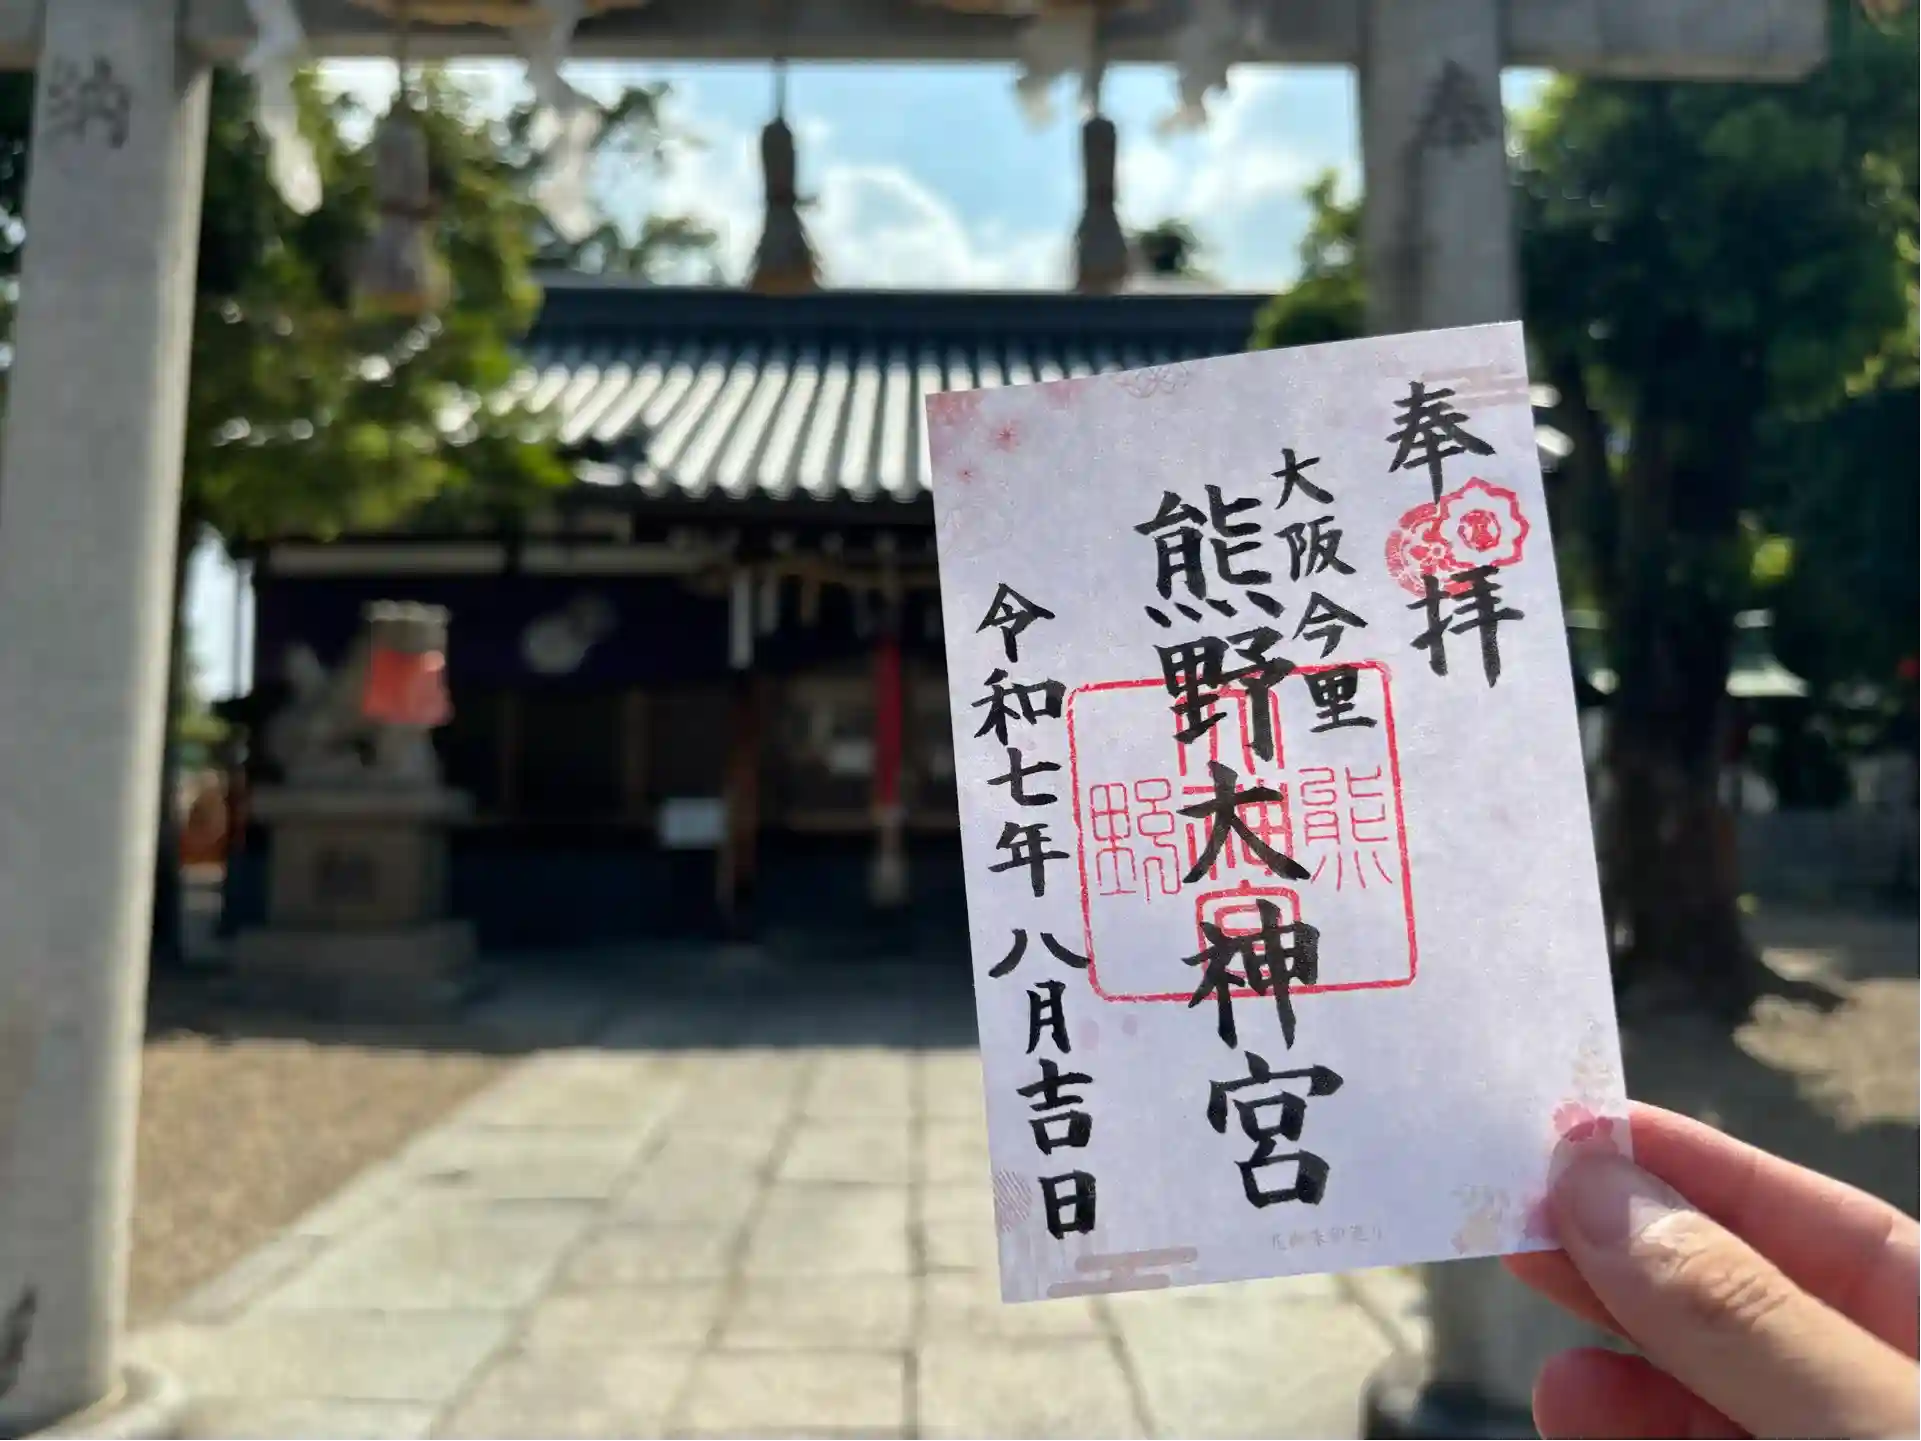 奉拝
大阪今里
熊野大神宮
令和七年八月吉日
熊野大神宮
奉
納